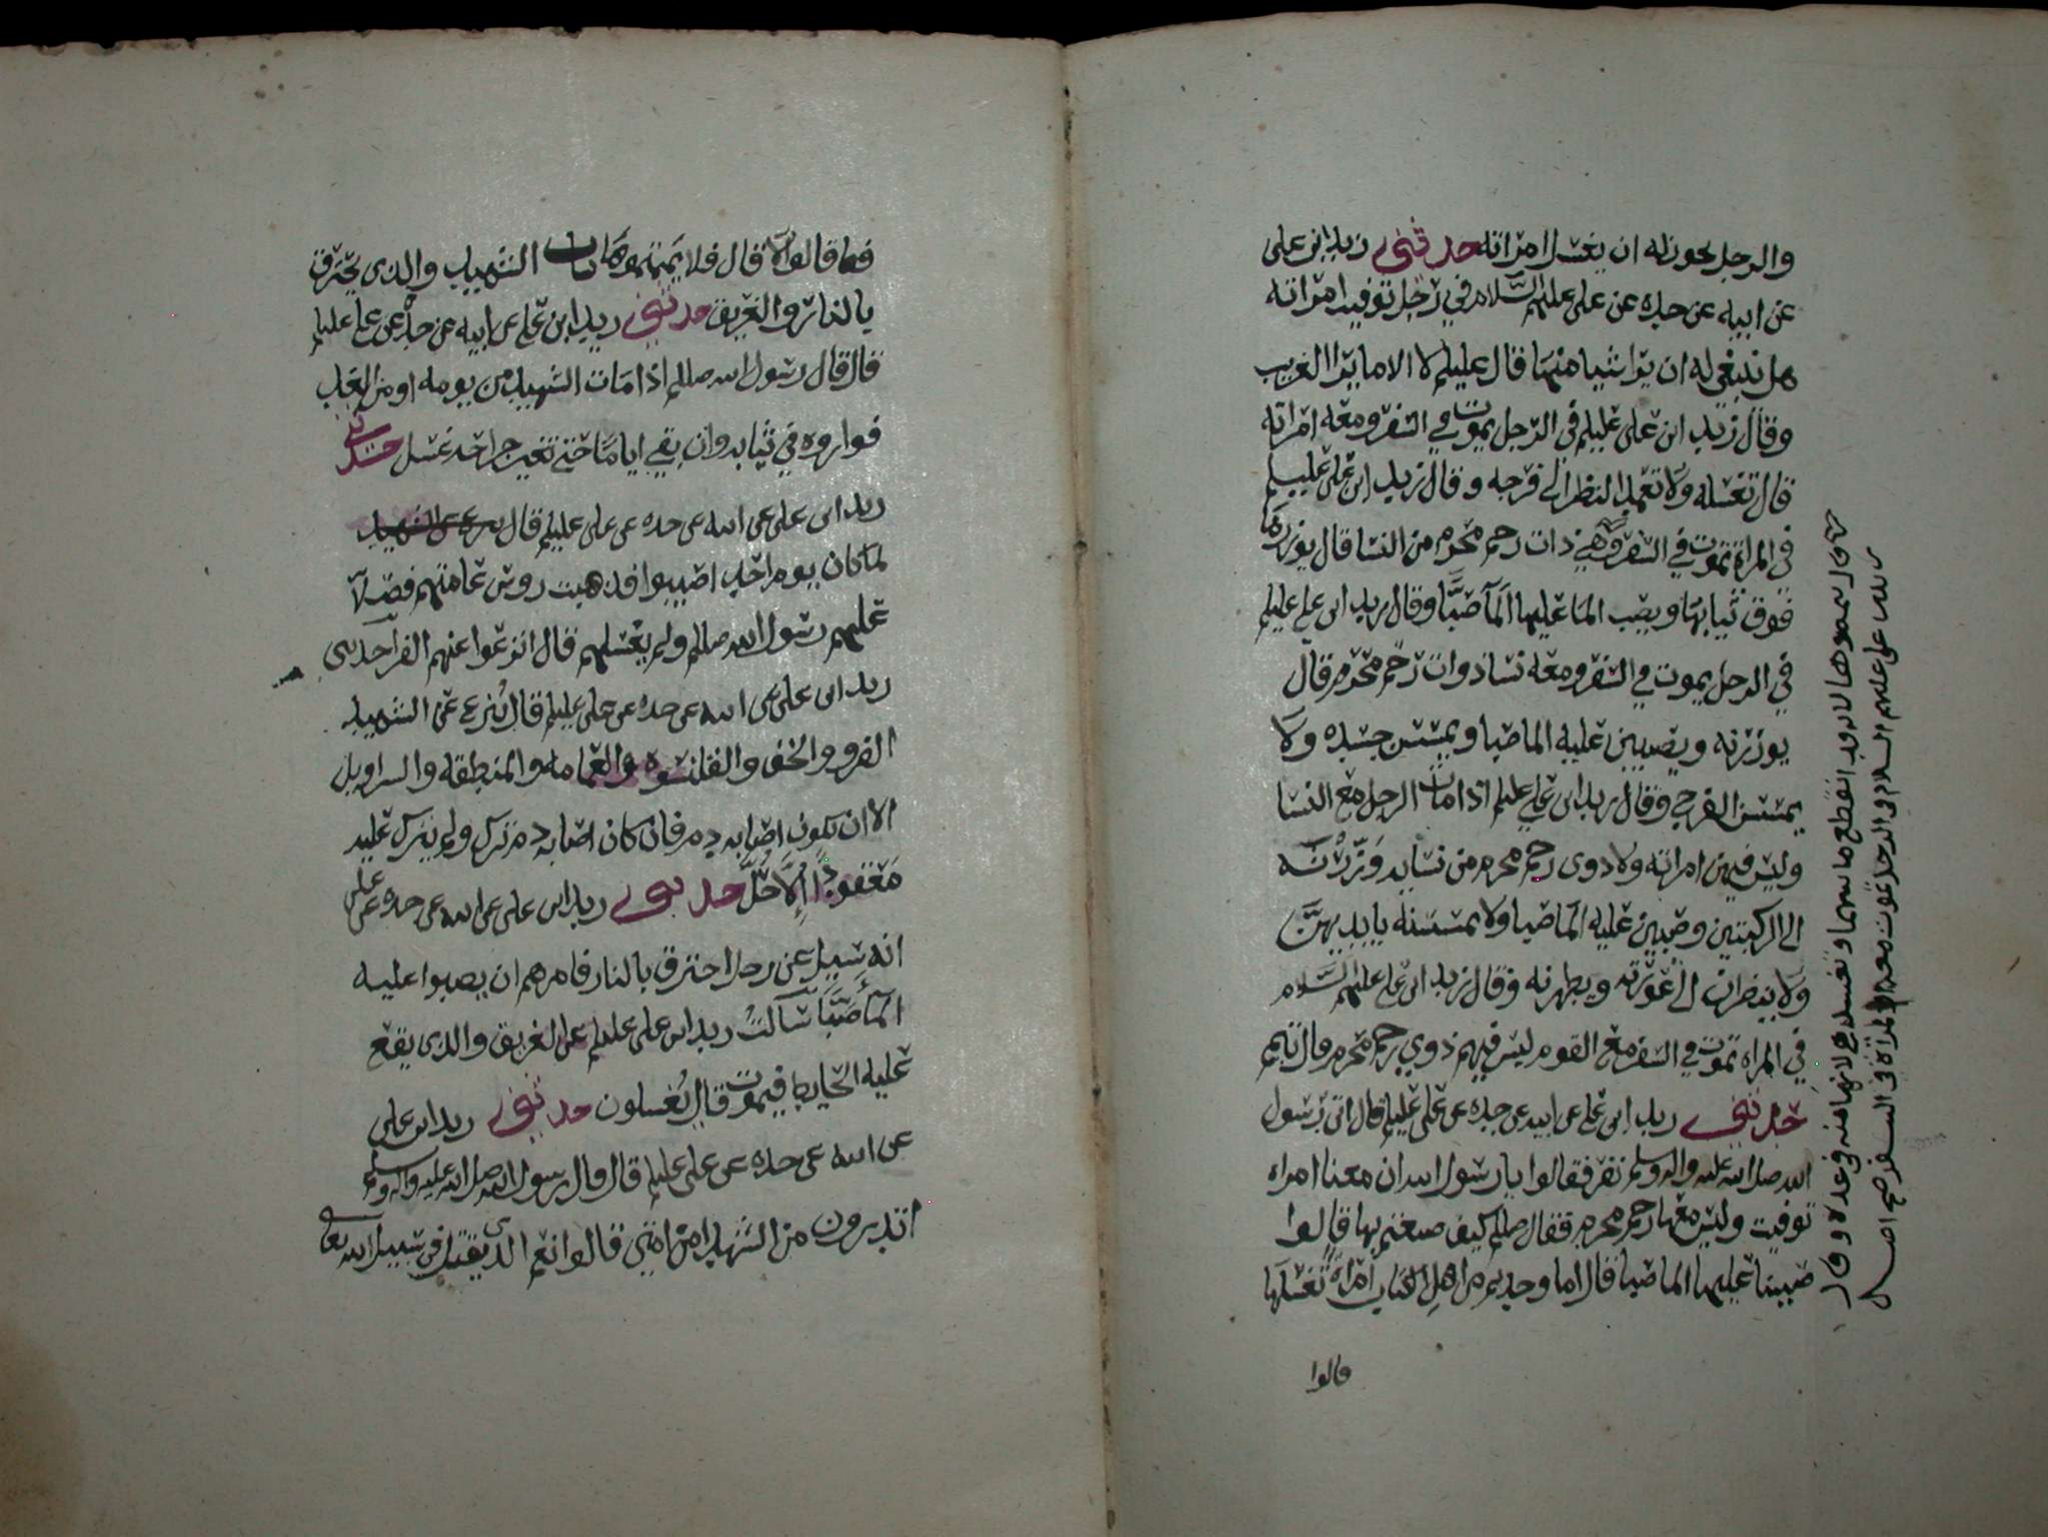 والرجل يجوز له ان يغسل امراته حدثني زيد ابن علي
عن ابيه عن جده عن علي عليهم السلام في رجل توفيت امراته
هل ينبغي له ان يرا شيا منها قال عليلم لا الا ما يرا الغريب
وقال زيد ابن علي عليلم في الرجل يموت في السفر ومعه امراته
قال تغسله ولا تعمد النظر الى فرجه وقال زيد ابن علي عليلم
في المراة تموت في السفر وهي ذات رحم محرم من النسا قال يوزرها
فوق ثيابها ويصب الما عليها الما صبا وقال زيد ابن علي عليلم
في الرجل يموت في السفر ومعه نسا ذوات رحم محرم قال
يوزرنه ويصبين عليه الما صبا ويمسسن جسده ولا
يمسسن الفرج وقال زيد ابن علي عليلم اذا مات الرجل مع النسا
وليس فيهن امراته ولا ذوى رحم محرم من نسايه وزرنه
الى الركبتين وصبين عليه الما صبا ولا يمسسنه بايديهن
ولا ينضرن الى عورته ويطهرنه وقال زيد ابن علي عليهم السلام
في المراه تموت في السفر مع القوم ليس فيهم ذوي رحم محرم قال تيمم
حدثني زيد ابن علي عن ابيه عن جده عن علي عليلم قال اتى رسول
الله صلى الله عليه واله وسلم نفر فقالوا يا رسول الله ان معنا امراه
توفيت وليس معها رحم محرم فقال صللم كيف صنعتم بها قالوا
صببنا عليها الما صبا قال اما وجدتم من اهل الكتاب امراة تغسلها
قالوا
لانه قد انقطع ما بينهما وتغسله هي لانها منه في عدة وقال
علي عليهم السلام في الرجل يموت معه المراة في السفر صح اصل
فما قالوا لا قال فلا يممتموها باب الشهيد والذي يحترق
بالنار والغريق حدثني زيد ابن علي عن ابيه عن جده عن علي عليلم
قال قال رسول الله صللم اذا مات الشهيد من يومه او من الغد
فواروه في ثيابه وان بقي اياما حتى تغير جراحه غسل حدثني
زيد ابن علي عن ابيه عن جده عن علي عليلم قال ينزع عن الشهيد
لما كان يوم احد اصيبوا فذهبت روس عامتهم فصلا
عليهم رسول الله صللم ولم يغسلهم قال انزعوا عنهم الفرا حدثني
زيد ابن علي عن ابيه عن جده عن علي عليلم قال ينزع عن الشهيد
الفرو والخف والقلنسوه والعمامه والمنطقه والسراويل
الا ان يكون اصابه دم فان كان اصابه دم ترك ولم يترك عليه
معقودا الا حل حدثني زيد ابن علي عن ابيه عن جده عن علي
انه سيل عن رجل احترق بالنار فامرهم ان يصبوا عليه
الما صبا سالت زيد ابن علي عليلم عن الغريق والذي يقع
عليه الحايط فيموت قال يغسلون حدثني زيد ابن علي
عن ابيه عن جده عن علي عليلم قال قال رسول الله صلى الله عليه واله وسلم
اتدرون من الشهدا من امتي قالوا نعم الذي يقتل في سبيل الله تعالى